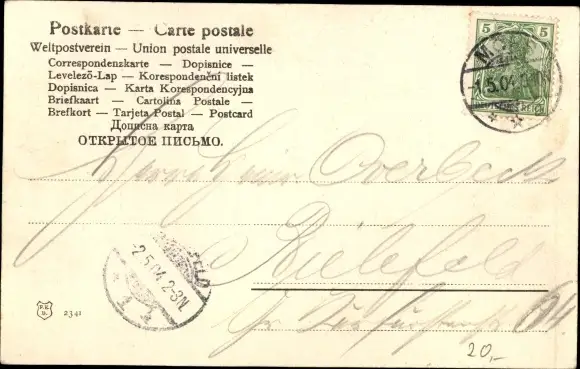 Postkarte — Carte postale
Weltpostverein — Union postale universelle
Correspondenzkarte — Dopisnice —
Levelező-Lap — Korespondenčni listek
Dopisnica — Karta Korespondencyjna
Briefkaart — Cartolina Postale —
Brefkort — Tarjeta Postal — Postcard
Дописна карта
ОТКРЫТОЕ ПИСЬМО.
5 5
DEUTSCHES REICH
1.5.04
Overbeck
Bielefeld
2.5.04 2-3N.
1
2341
20,-